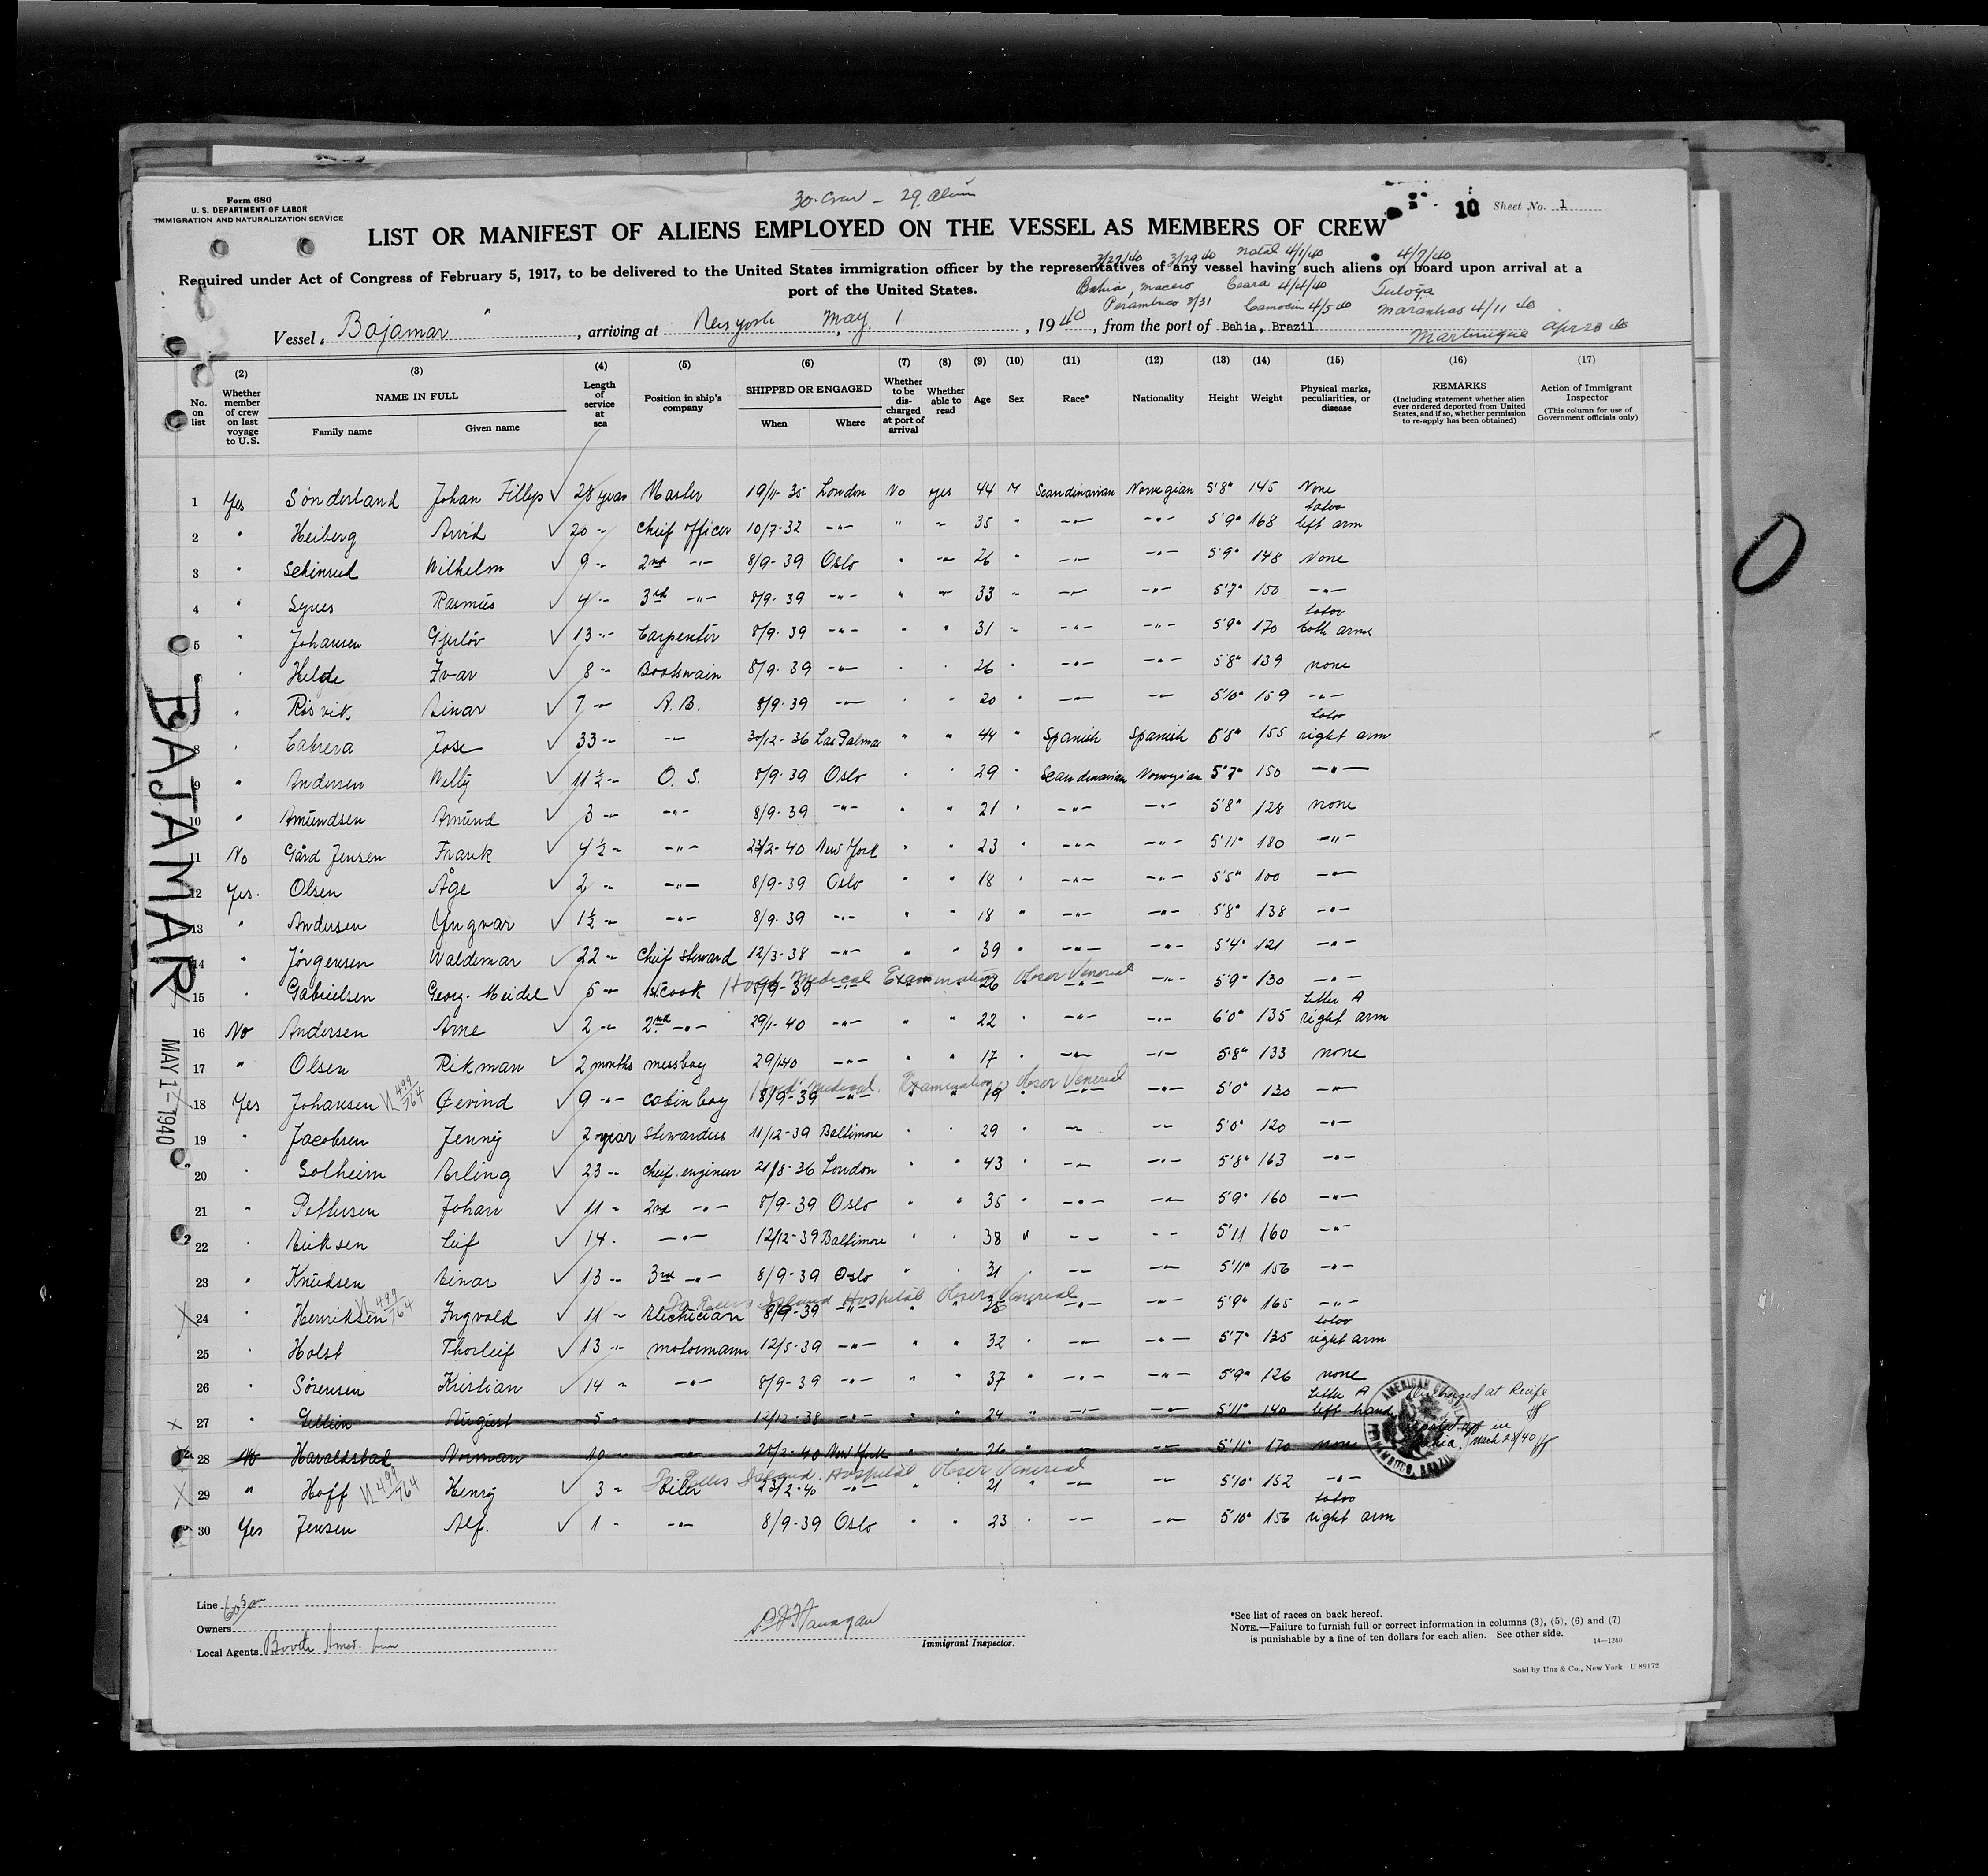 30 Crew - 29 Alien
Form 680
U. S. DEPARTMENT OF LABOR
IMMIGRATION AND NATURALIZATION SERVICE
10 Sheet No. 1
LIST OR MANIFEST OF ALIENS EMPLOYED ON THE VESSEL AS MEMBERS OF CREW
3/27/40 3/29 40 Natal 4/1/40 4/7/40
Required under Act of Congress of February 5, 1917, to be delivered to the United States immigration officer by the representatives of any vessel having such aliens on board upon arrival at a
port of the United States.
Bahia, Maceio Ceara 4/4/40 Tutoya
Pernambuco 3/31 Camocim 4/5 40 Maranhas 4/11 40
Vessel Bajamar, arriving at New york May 1, 1940, from the port of Bahia, Brazil
Martinique Apr 23 40
(2) (3) (4) (5) (6) (7) (8) (9) (10) (11) (12) (13) (14) (15) (16) (17)
No. on list
Whether member of crew on last voyage to U.S.
NAME IN FULL
Family name Given name
Length of service at sea
Position in ship's company
SHIPPED OR ENGAGED
When Where
Whether to be discharged at port of arrival
Whether able to read
Age Sex Race* Nationality Height Weight
Physical marks, peculiarities, or disease
REMARKS
(Including statement whether alien ever ordered deported from United States, and if so, whether permission to re-apply has been obtained)
Action of Immigrant Inspector
(This column for use of Government officials only)
1 Yes Sönderland Johan Fillip ✓ 28 years Master 19/11-35 London No yes 44 M Scandinavian Norwegian 5'8" 145 None
2 " Heiberg Arvid ✓ 20 -"- Cheif officer 10/7-32 -"- " -"- 35 " -"- -"- 5'9" 168 tatoo left arm
3 " Wilhelm ✓ 9 -"- 2nd -"- 8/9-39 Oslo " -"- 26 " -"- -"- 5'9" 148 None
4 " Rasmus ✓ 4 -"- 3rd -"- 8/9-39 -"- " -"- 33 -"- -"- -"- 5'7" 150 -"-
5 " Johansen ✓ 13 -"- Carpenter 8/9-39 -"- " " 31 -"- -"- -"- 5'9" 170 tatoo both arms
" Helde Ivar ✓ 8 -"- Bootswain 8/9-39 -"- " " 26 " -"- -"- 5'8" 139 none
" Risvik Einar ✓ 7 -"- A.B. 8/9-39 -"- " " 20 " -"- -"- 5'10" 159 -"-
8 " Cabrera Jose ✓ 33 -"- -"- 30/12-36 Las Palmas " " 44 " Spanish Spanish 5'8" 155 tatoo right arm
9 " Andersen Willy ✓ 11½ -"- O. S. 8/9-39 Oslo " " 29 " Scandinavian Norwegian 5'7" 150 -"-
10 " Amundsen Amund ✓ 3 -"- -"- 8/9-39 -"- " " 21 " -"- -"- 5'8" 128 none
11 No Gård Jensen Frank ✓ 4½ -"- -"- 23/2-40 New York " " 23 " -"- -"- 5'11" 180 -"-
12 Yes. Olsen Åge ✓ 2 -"- -"- 8/9-39 Oslo " " 18 " -"- -"- 5'5" 100 -"-
13 " Andersen Yngvar ✓ 1½ -"- -"- 8/9-39 -"- " " 18 " -"- -"- 5'8" 138 -"-
14 " Jörgensen Waldemar ✓ 22 -"- Cheif steward 12/3-38 -"- " " 39 " -"- -"- 5'4" 121 -"-
Hosp Medical Examination Obser Venereal
15 " Gabrielsen Georg. Meidel ✓ 5 -"- 1st cook 8/9-39 -"- " " 26 " -"- -"- 5'9" 130 -"-
16 No Andersen Arne ✓ 2 -"- 2nd -"- 29/1-40 -"- " " 22 " -"- -"- 6'0" 135 letter A right arm
17 " Olsen Rikman ✓ 2 months messboy 29/1-40 -"- " " 17 " -"- -"- 5'8" 133 none
Hosp Medical Examination Obser Venereal
18 Yes Johansen 499/764 Øevind ✓ 9 -"- cabin boy 8/9-39 -"- " " 19 " -"- -"- 5'0" 130 -"-
19 " Jacobsen Jenny ✓ 2 year Stewardess 11/12-39 Baltimore " " 29 " -"- -"- 5'0" 120 -"-
20 " Solheim Erling ✓ 23 -"- Cheif. engineer 21/8-36 London " " 43 " -"- -"- 5'8" 163 -"-
21 " Pettersen Johan ✓ 11 " 2nd -"- 8/9-39 Oslo " " 35 " -"- -"- 5'9" 160 -"-
22 " Eriksen Leif ✓ 14 " -"- 12/12-39 Baltimore " " 38 " -"- -"- 5'11 160 -"-
23 " Knudsen Einar ✓ 13 -"- 3rd -"- 8/9-39 Oslo " " 31 " -"- -"- 5'11" 156 -"-
To Ellis Island Hospital Obser Venereal
24 " Henriksen 499/764 Ingvald ✓ 11 -"- Electrician 8/9-39 -"- " " " -"- -"- 5'9" 165 -"-
25 " Holst Thorleif ✓ 13 -"- motormann 12/5-39 -"- " " 32 " -"- -"- 5'7" 135 tatoo right arm
26 " Sörensen Kristian ✓ 14 " -"- 8/9-39 -"- " " 37 " -"- -"- 5'9" 126 none
27 " August 5 " -"- 12/12-38 -"- " " 24 " -"- -"- 5'11" 140 letter A left hand Discharged at Recife
28 No Haraldstad Norman 10 -"- -"- 20/2-40 New York " " 26 " -"- -"- 5'11" 170 none in Bahia, March 28/40
AMERICAN CONSUL PERNAMBUCO, BRAZIL
To Ellis Island Hospital Obser Venereal
29 " Hoff 499/764 Henry ✓ 3 " Oiler 23/2-40 -"- " " 21 " -"- -"- 5'10" 152 -"-
30 Yes Jensen Alf. ✓ 1 " -"- 8/9-39 Oslo " " 23 " -"- -"- 5'10" 156 tatoo right arm
BAJAMAR
MAY 1-1940
Line
Owners
Local Agents Booth Amer. Line
Immigrant Inspector.
*See list of races on back hereof.
NOTE.—Failure to furnish full or correct information in columns (3), (5), (6) and (7)
is punishable by a fine of ten dollars for each alien. See other side. 14—1240
Sold by Unz & Co., New York U 89172